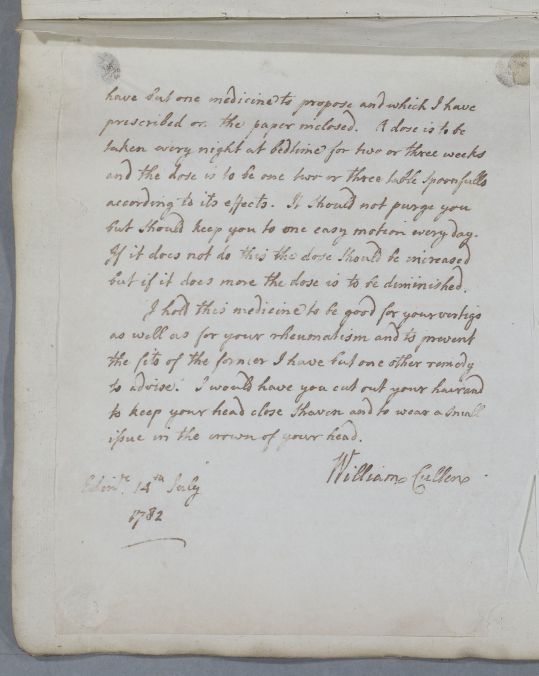 have but one medicine to propose and which I have
prescribed on the paper inclosed. A dose is to be
taken every night at bedtime for two or three weeks
and the dose is to be one two or three table spoonfulls
according to its effects. It should not purge you
but should keep you to one easy motion every day.
If it does not do this the dose should be increased
but if it does more the dose is to be diminished.
I hold this medicine to be good for your vertigo
as well as for your rheumatism and to prevent
the fits of the former I have but one other remedy
to advise. I would have you cut out your hair and
to keep your head close shaven and to wear a small
issue in the crown of your head.
William Cullen
Edinr. 14th July
1782